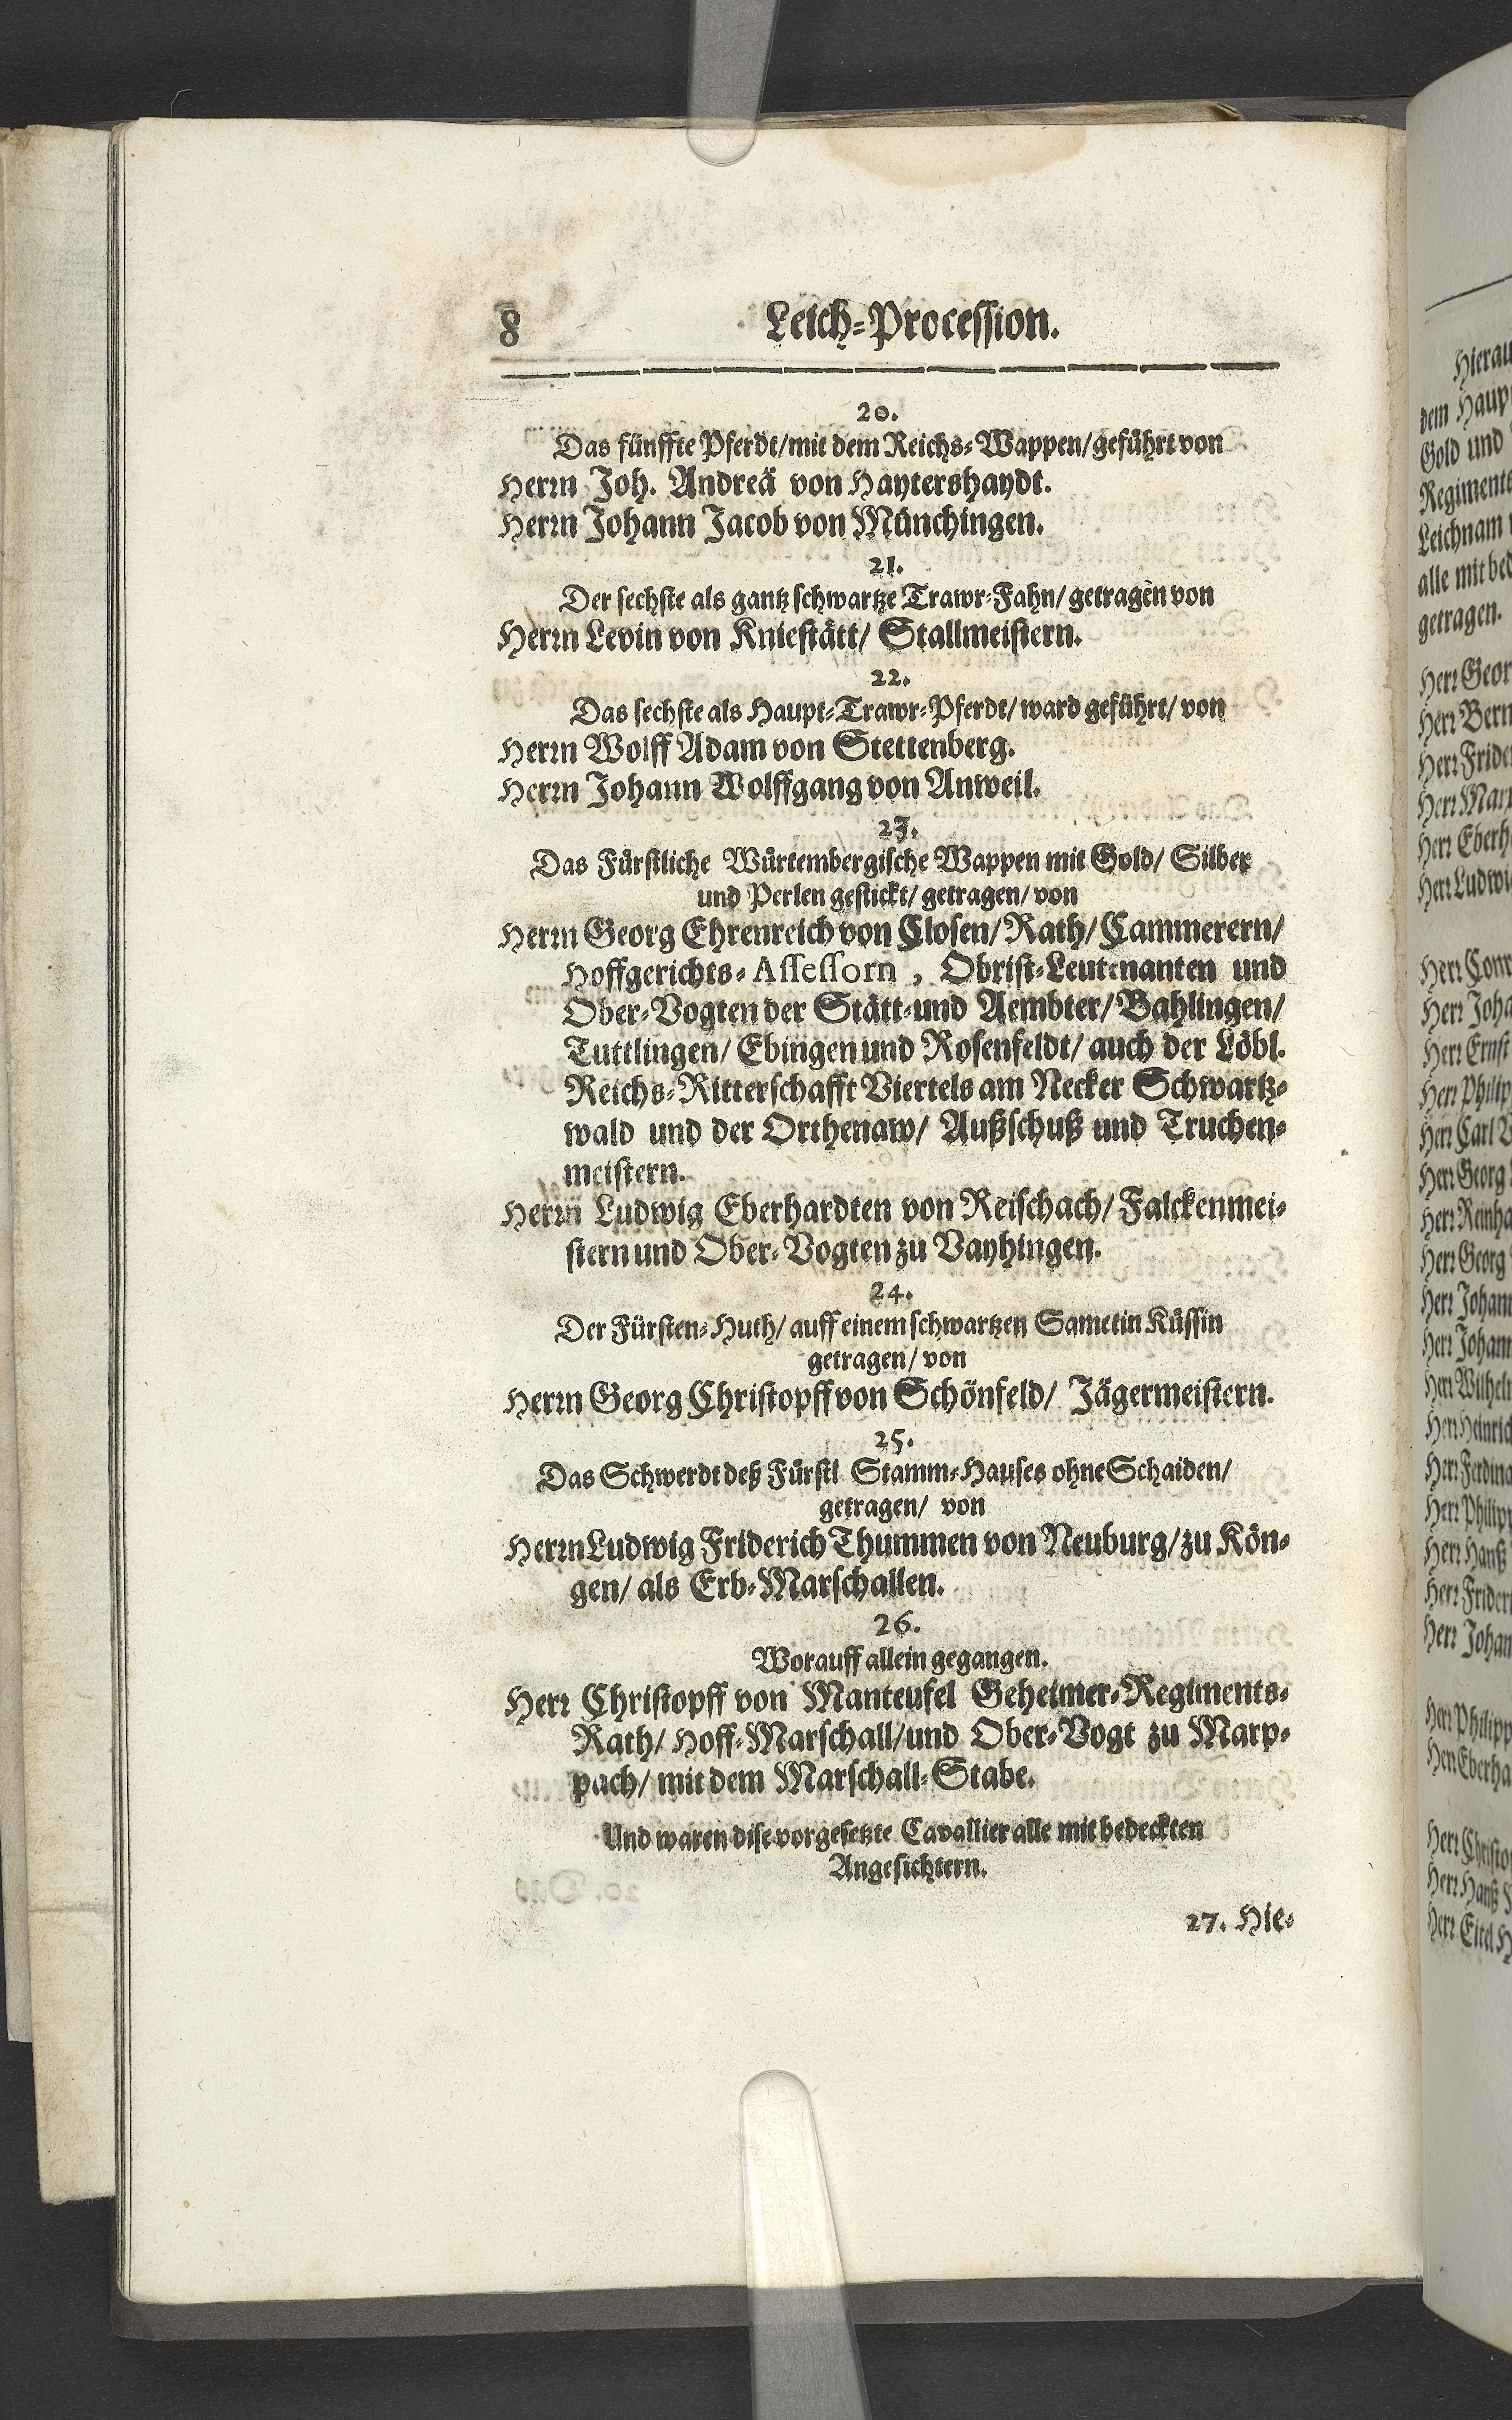 8 Leich-Procession.
20.
Das fünffte Pferdt/mit dem Reichs-Wappen/geführt von
Herrn Joh. Andreä von Haytershaydt.
Herrn Johann Jacob von Münchingen.
21.
Der sechste als gantz schwartze Trawr-Fahn/ getragen von
Herrn Levin von Kniestätt/ Stallmeistern.
22.
Das sechste als Haupt-Trawr-Pferdt/ ward geführt/ von
Herrn Wolff Adam von Stettenberg.
Herrn Johann Wolffgang von Anweil.
23.
Das Fürstliche Würtembergische Wappen mit Gold/ Silber
und Perlen gestickt/ getragen/ von
Herrn Georg Ehrenreich von Closen/ Rath/ Cammerern/
Hoffgerichts-Assessorn, Obrist-Leutenanten und
Ober-Vogten der Stätt-und Aembter/ Bahlingen/
Tuttlingen/ Ebingen und Rosenfeldt/ auch der Löbl.
Reichs-Ritterschafft Viertels am Necker Schwartz-
wald und der Orthenaw/ Außschuß und Truchen-
meistern.
Herrn Ludwig Eberhardten von Reischach/ Falckenmei-
stern und Ober-Vogten zu Vayhingen.
24.
Der Fürsten-Huth/ auff einem schwartzen Sametin Küssin
getragen/ von
Herrn Georg Christopff von Schönfeld/ Jägermeistern.
25.
Das Schwerdt deß Fürstl Stamm-Hauses ohne Schaiden/
getragen/ von
Herrn Ludwig Friderich Thummen von Neuburg/ zu Kön-
gen/ als Erb-Marschallen.
26.
Worauff allein gegangen.
Herr Christopff von Manteufel Geheimer-Regiments-
Rath/ Hoff-Marschall/und Ober-Vogt zu Marp-
pach/ mit dem Marschall-Stabe.
Und waren dise vorgesetzte Cavallier alle mit bedeckten
Angesichtern.
27. Hie-
dem
Gold und
Leichnam
getragen.
Herr
Herr
Herr
Herr
Herr
Herr
Herr
Herr
Herr Ernst
Herr
Herr Carl
Herr Georg
Herr
Herr Georg
Herr
Herr
Herr
Herr
Herr
Herr
Herr Hanß
Herr
Herr
Herr
Herr
Herr
Herr Hanß
Herr Eitel